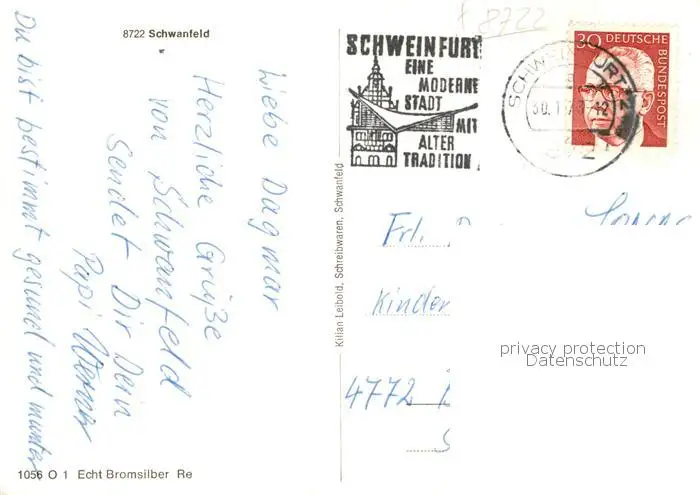 8722 Schwanfeld
Liebe Dagmar
Herzliche Grüße
von Schwanfeld
Sendet Dir Dein
Papi Werner
Du bist bestimmt gesund und munter
1056 O 1 Echt Bromsilber Re
Kilian Leibold, Schreibwaren, Schwanfeld
8722
SCHWEINFURT
EINE
MODERNE
STADT
MIT
ALTER
TRADITION
SCHWEINFURT
30 DEUTSCHE
BUNDESPOST
Frl.
Kinder
4772
privacy protection
Datenschutz